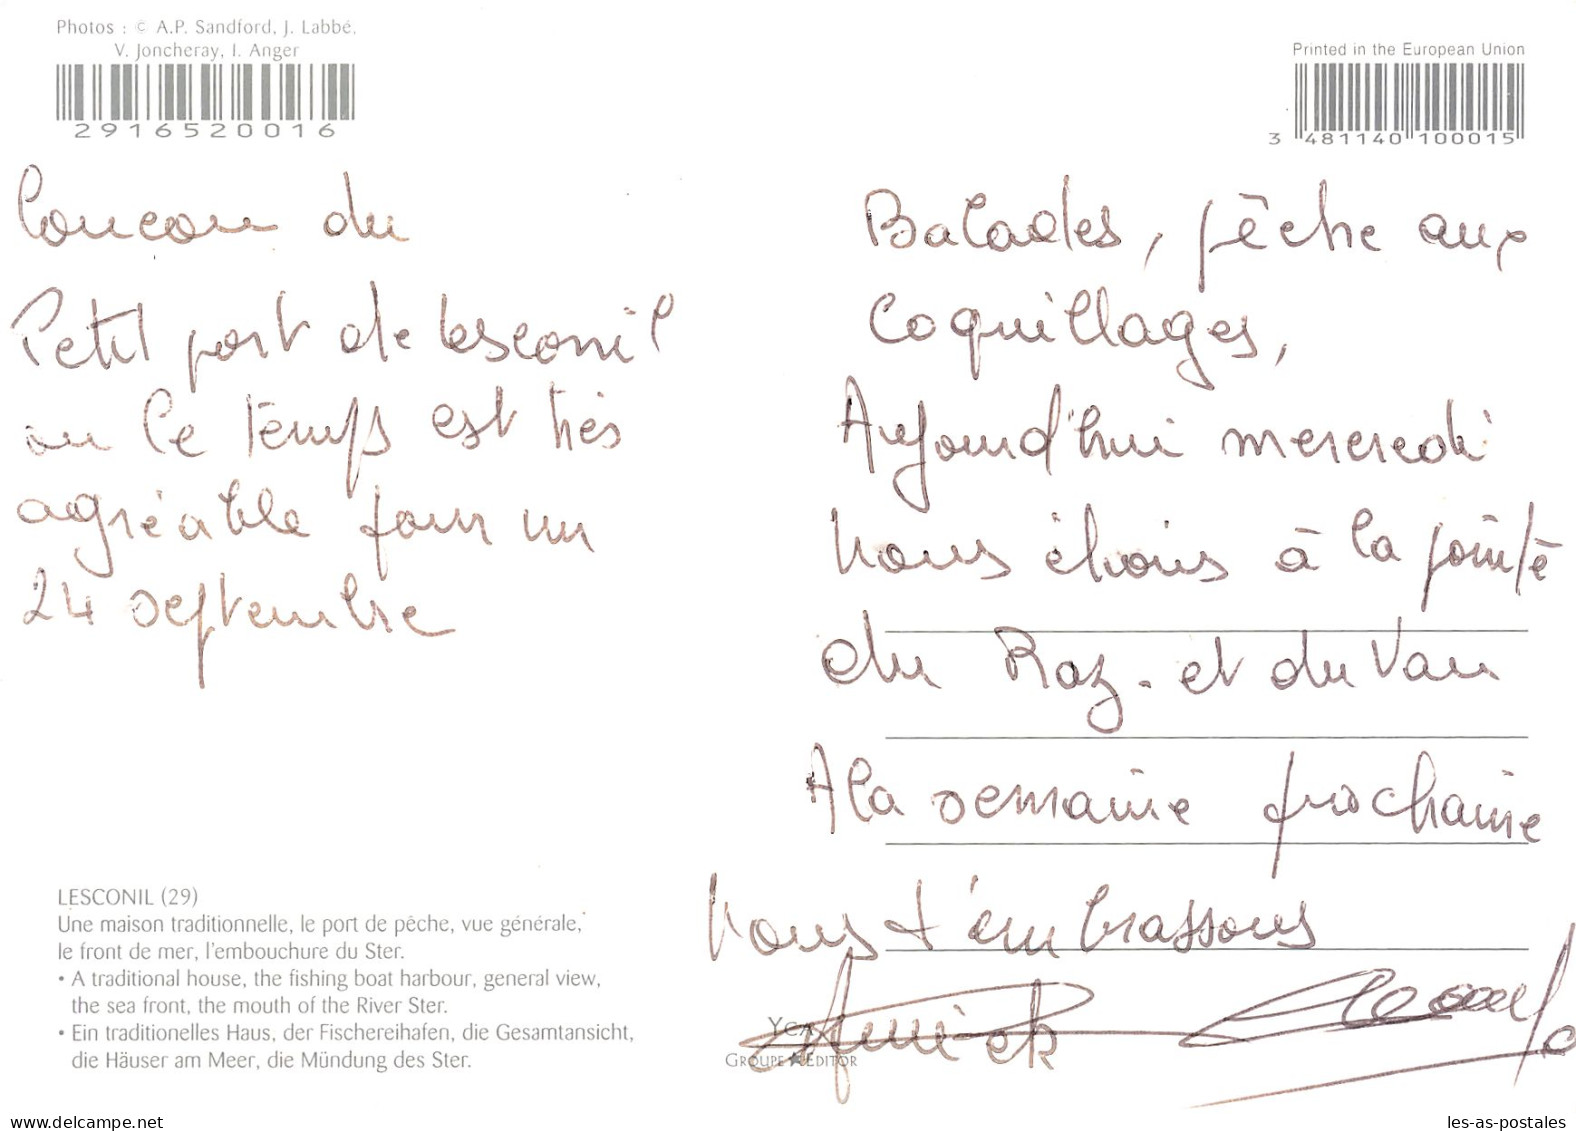 Photos : © A.P. Sandford, J. Labbé.
V. Joncheray, I. Anger
2916520016
Printed in the European Union
3 481140 100015
Coucou du
Petit port de lesconil
ou le temps est très
agréable pour un
24 septembre
Balades, pêche aux
Coquillages,
Aujourd'hui mercredi
nous étions à la pointe
du Raz - et du Van
A la semaine prochaine
nous t'embrassons
Annick
LESCONIL (29)
Une maison traditionnelle, le port de pêche, vue générale,
le front de mer, l'embouchure du Ster.
• A traditional house, the fishing boat harbour, general view,
the sea front, the mouth of the River Ster.
• Ein traditionelles Haus, der Fischereihafen, die Gesamtansicht,
die Häuser am Meer, die Mündung des Ster.
YCA
GROUPE ★ EDITOR
www.delcampe.net
les-as-postales